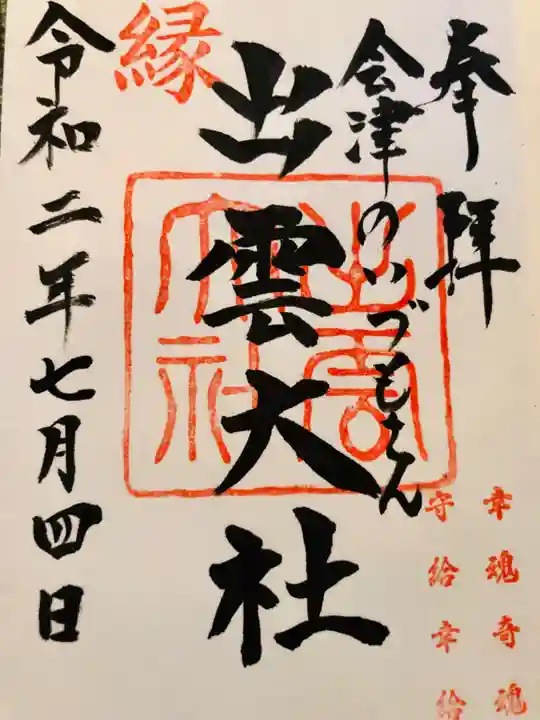 奉拝
会津のいづもさん
出雲大社
縁
令和二年七月四日
出雲大社
幸魂奇魂
守給幸給